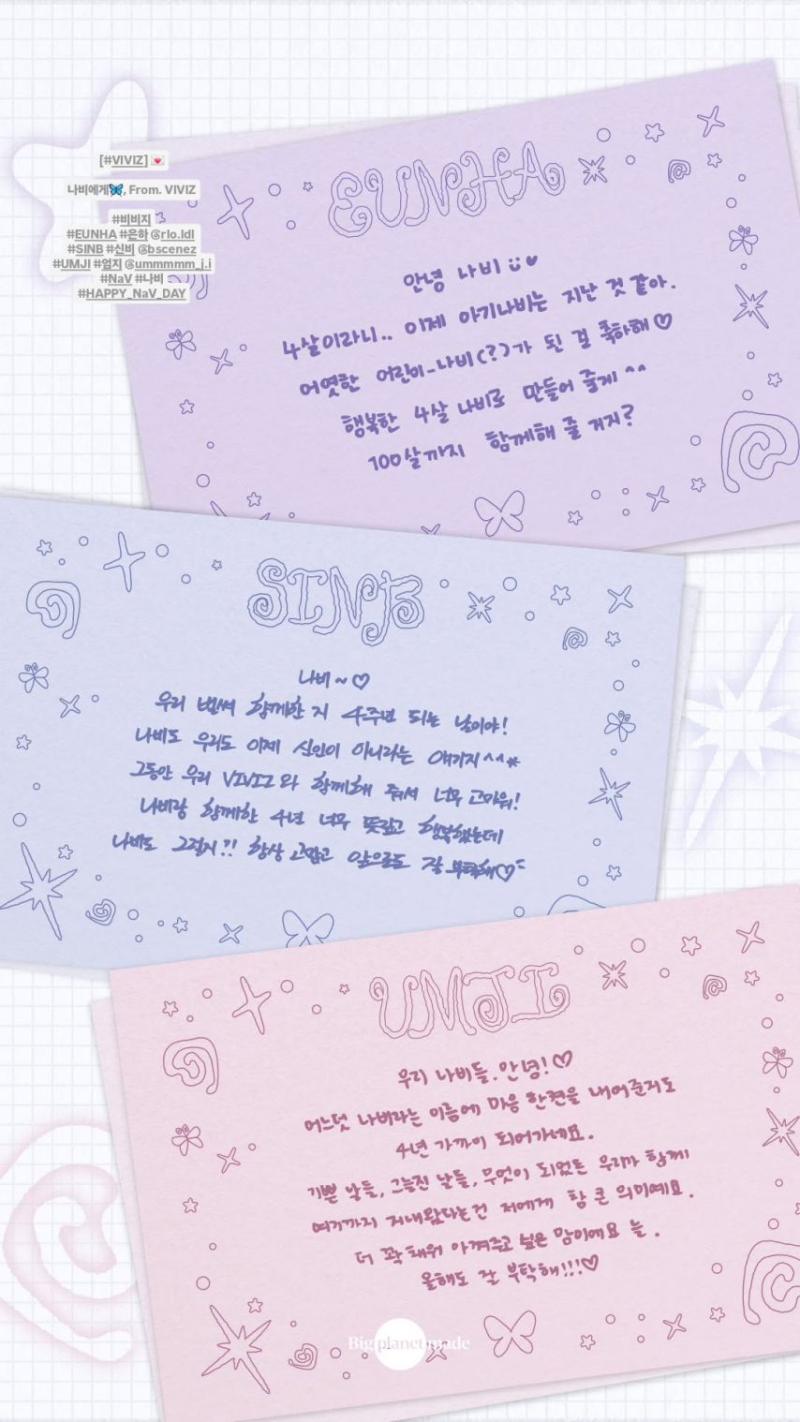 [#VIVIZ] 💌
나비에게🦋, From. VIVIZ
#비비지
#EUNHA #은하 @rlo.ldl
#SINB #신비 @bscenez
#UMJI #엄지 @ummmmm_j.i
#NaV #나비
#HAPPY_NaV_DAY
EUNHA
안녕 나비 ♥
4살이라니.. 이제 아기나비는 지난 것 같아.
어엿한 어린이-나비(?)가 된 걸 축하해♡
행복한 4살 나비로 만들어 줄게 ^^
100살까지 함께해 줄 거지?
SINB
나비~♡
우리 벌써 함께한 지 4주년 되는 날이야!
나비도 우리도 이제 신인이 아니라는 얘기지^^*
그동안 우리 VIVIZ와 함께해 줘서 너무 고마워!
나비랑 함께한 4년 너무 뜻깊고 행복했는데
나비도 그렇지?! 항상 고맙고 앞으로도 잘 부탁해♡
UMJI
우리 나비들. 안녕!♡
어느덧 나비라는 이름에 마음 한켠을 내어준지도
4년 가까이 되어가네요.
기쁜 날들, 그늘진 날들, 무엇이 되었든 우리가 함께
여기까지 지내왔다는건 저에게 참 큰 의미예요.
더 꽉 채워 아껴주고 싶은 맘이에요 늘.
올해도 잘 부탁해!!!♡
Bigplanetmade